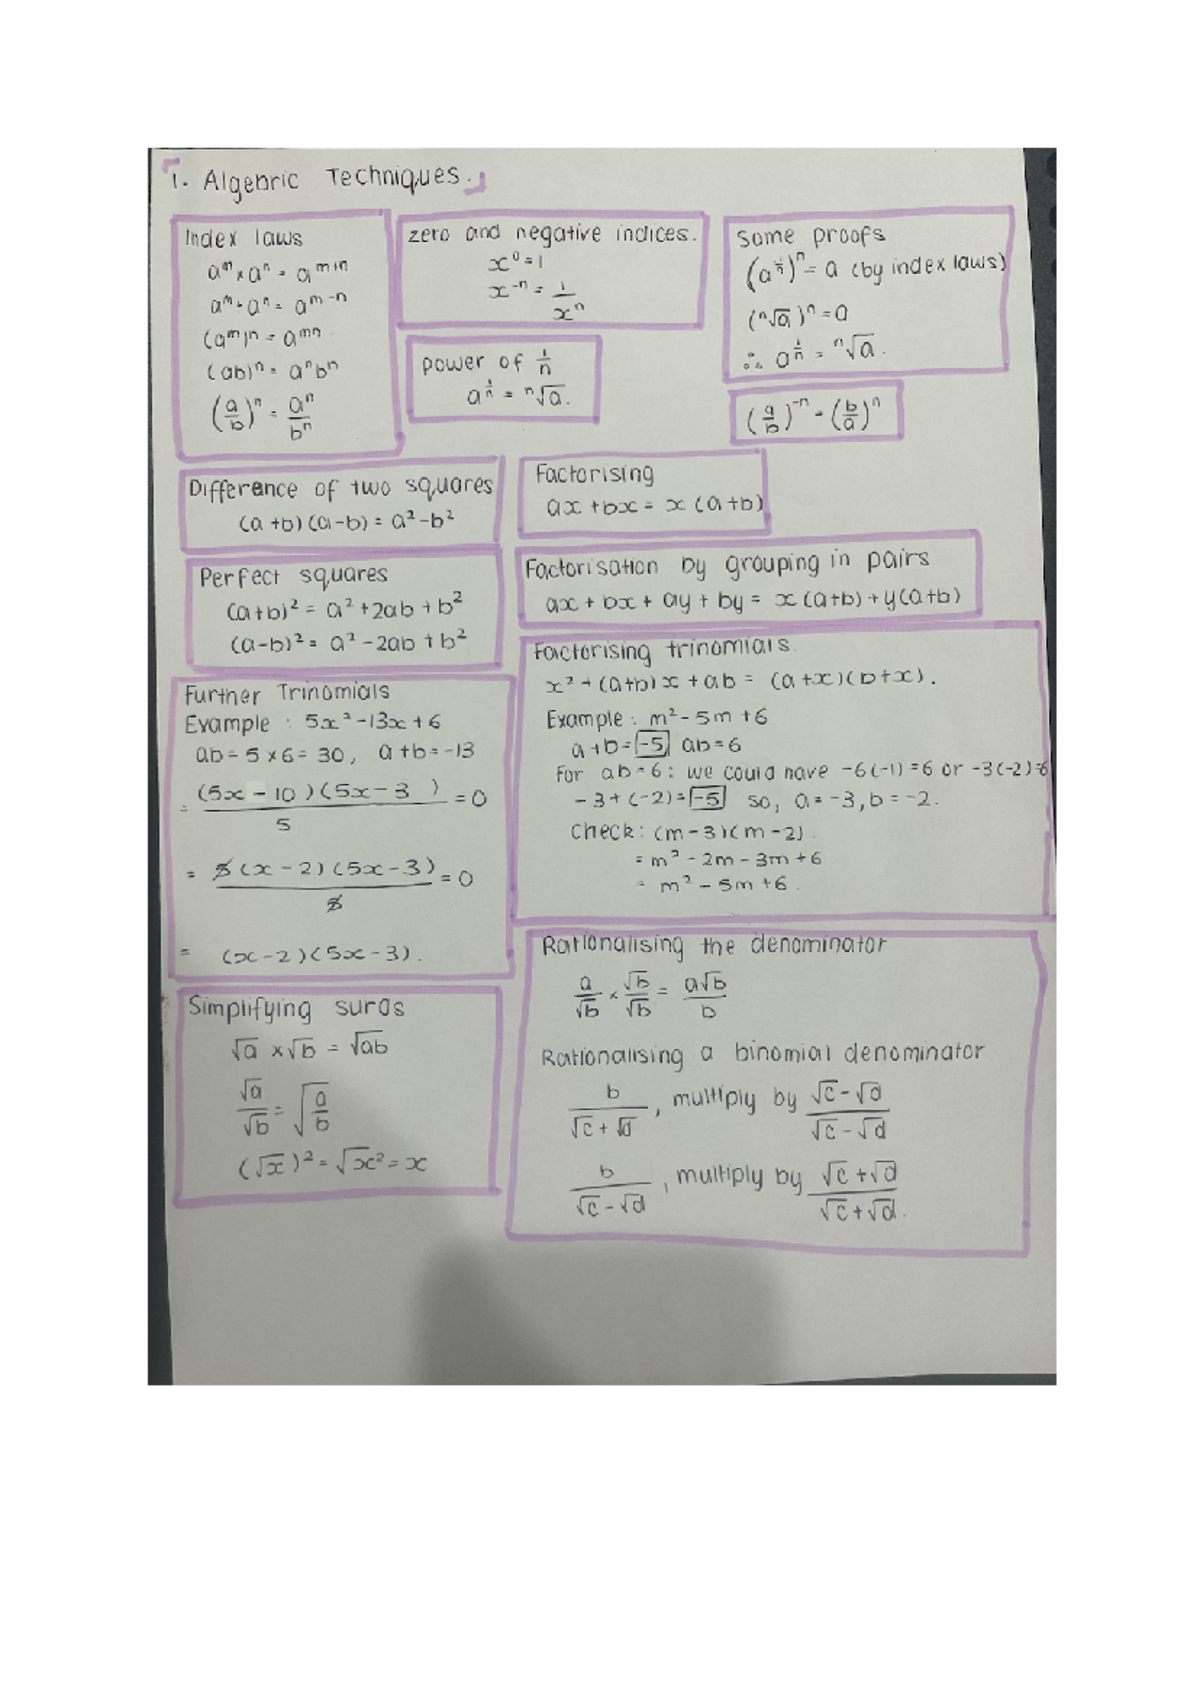 1. Algebric Techniques.
Index laws
aᵐ × aⁿ = aᵐ⁺ⁿ
aᵐ ÷ aⁿ = aᵐ⁻ⁿ
(aᵐ)ⁿ = aᵐⁿ
(ab)ⁿ = aⁿbⁿ
(a/b)ⁿ = aⁿ/bⁿ
zero and negative indices.
x⁰ = 1
x⁻ⁿ = 1/xⁿ
power of 1/n
a^(1/n) = ⁿ√a.
Some proofs
(a^(1/n))ⁿ = a (by index laws)
(ⁿ√a)ⁿ = a
∴ a^(1/n) = ⁿ√a.
(a/b)⁻ⁿ = (b/a)ⁿ
Difference of two squares
(a+b)(a-b) = a² - b²
Factorising
ax + bx = x(a+b)
Perfect squares
(a+b)² = a² + 2ab + b²
(a-b)² = a² - 2ab + b²
Factorisation by grouping in pairs
ax + bx + ay + by = x(a+b) + y(a+b)
Further Trinomials
Example : 5x² - 13x + 6
ab = 5 × 6 = 30, a+b = -13
= (5x - 10)(5x - 3)/5 = 0
= 5(x - 2)(5x - 3)/5 = 0
= (x - 2)(5x - 3).
Factorising trinomials.
x² + (a+b)x + ab = (a+x)(b+x).
Example : m² - 5m + 6
a+b = -5 ab = 6
For ab = 6 : we could have -6(-1) = 6 or -3(-2) = 6
-3 + (-2) = -5 so, a = -3, b = -2.
check : (m - 3)(m - 2).
= m² - 2m - 3m + 6
= m² - 5m + 6.
Simplifying surds
√a × √b = √ab
√a/√b = √(a/b)
(√x)² = √x² = x
Rationalising the denominator
a/√b × √b/√b = a√b/b
Rationalising a binomial denominator
b/(√c + √d), multiply by (√c - √d)/(√c - √d)
b/(√c - √d), multiply by (√c + √d)/(√c + √d).